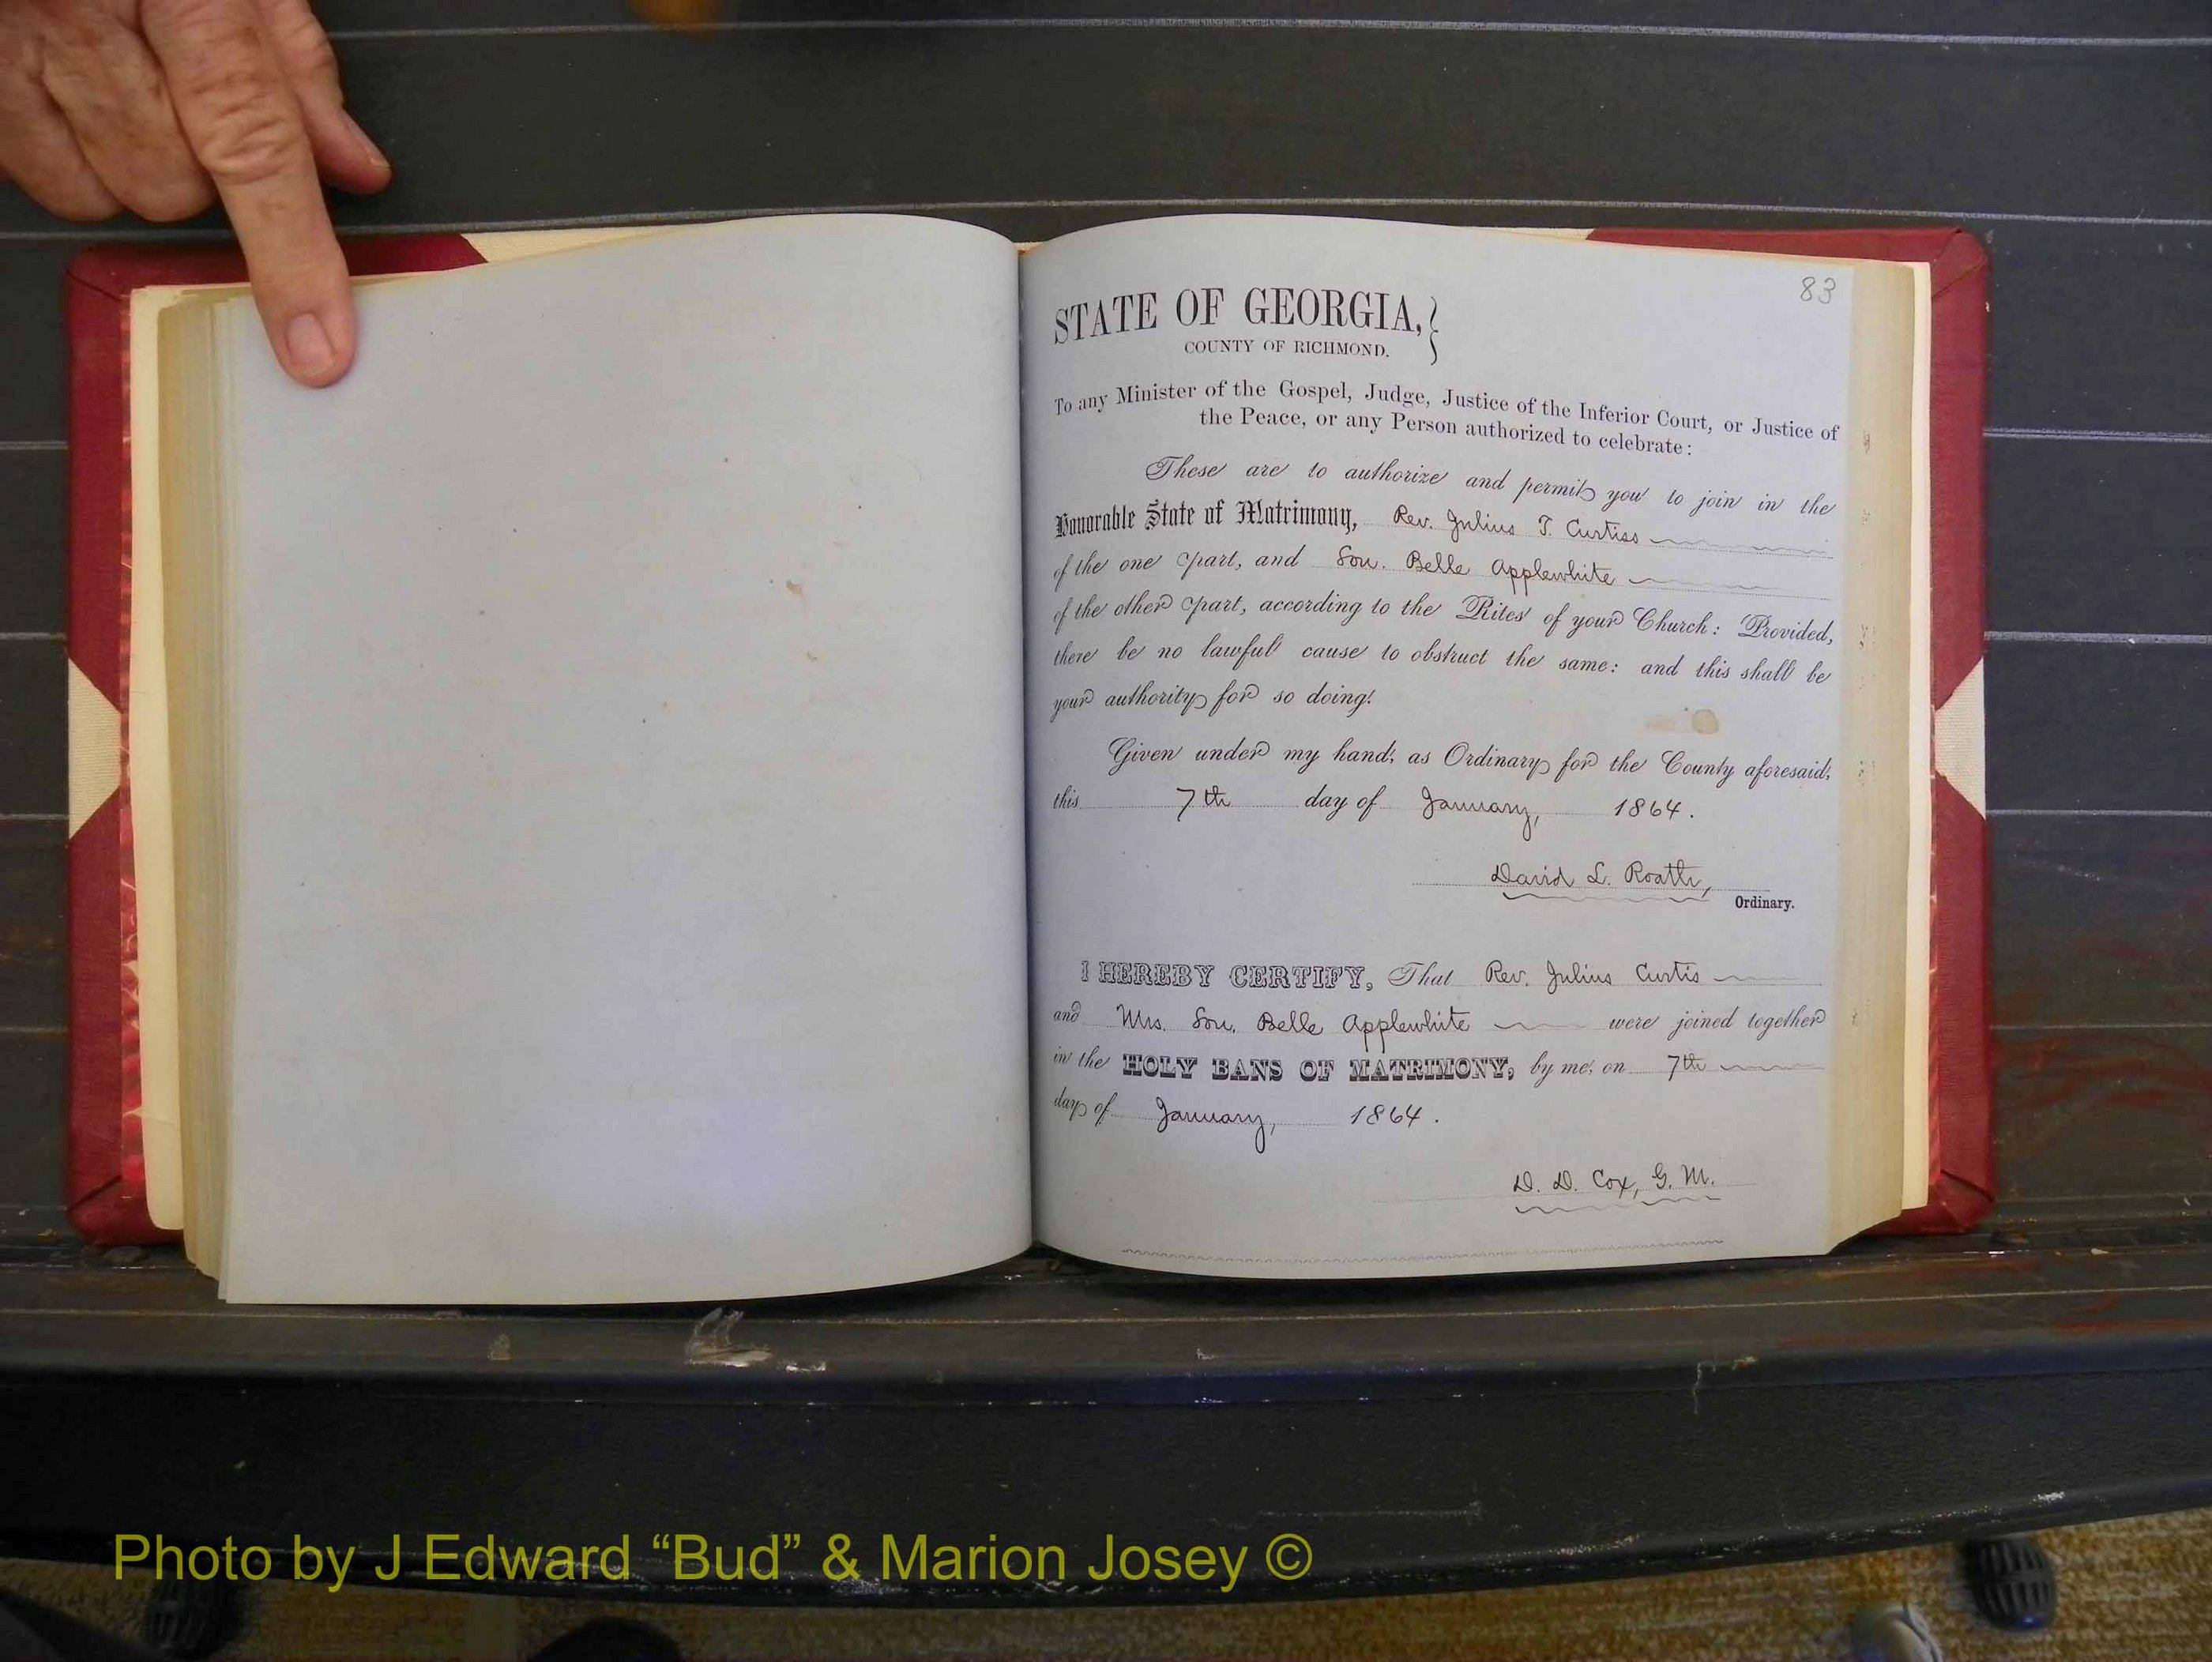 83
STATE OF GEORGIA,
COUNTY OF RICHMOND.
To any Minister of the Gospel, Judge, Justice of the Inferior Court, or Justice of
the Peace, or any Person authorized to celebrate:
These are to authorize and permit you to join in the
Honorable State of Matrimony, Rev. Julius T. Curtiss
of the one part, and Lou. Belle Applewhite
of the other part, according to the Rites of your Church: Provided,
there be no lawful cause to obstruct the same: and this shall be
your authority for so doing.
Given under my hand, as Ordinary for the County aforesaid,
this 7th day of January, 1864.
David L. Roath,
Ordinary.
I HEREBY CERTIFY, That Rev. Julius Curtis
and Mrs. Lou. Belle Applewhite were joined together
in the HOLY BANS OF MATRIMONY, by me, on 7th
day of January, 1864.
D. D. Cox, G. M.
Photo by J Edward “Bud” & Marion Josey ©